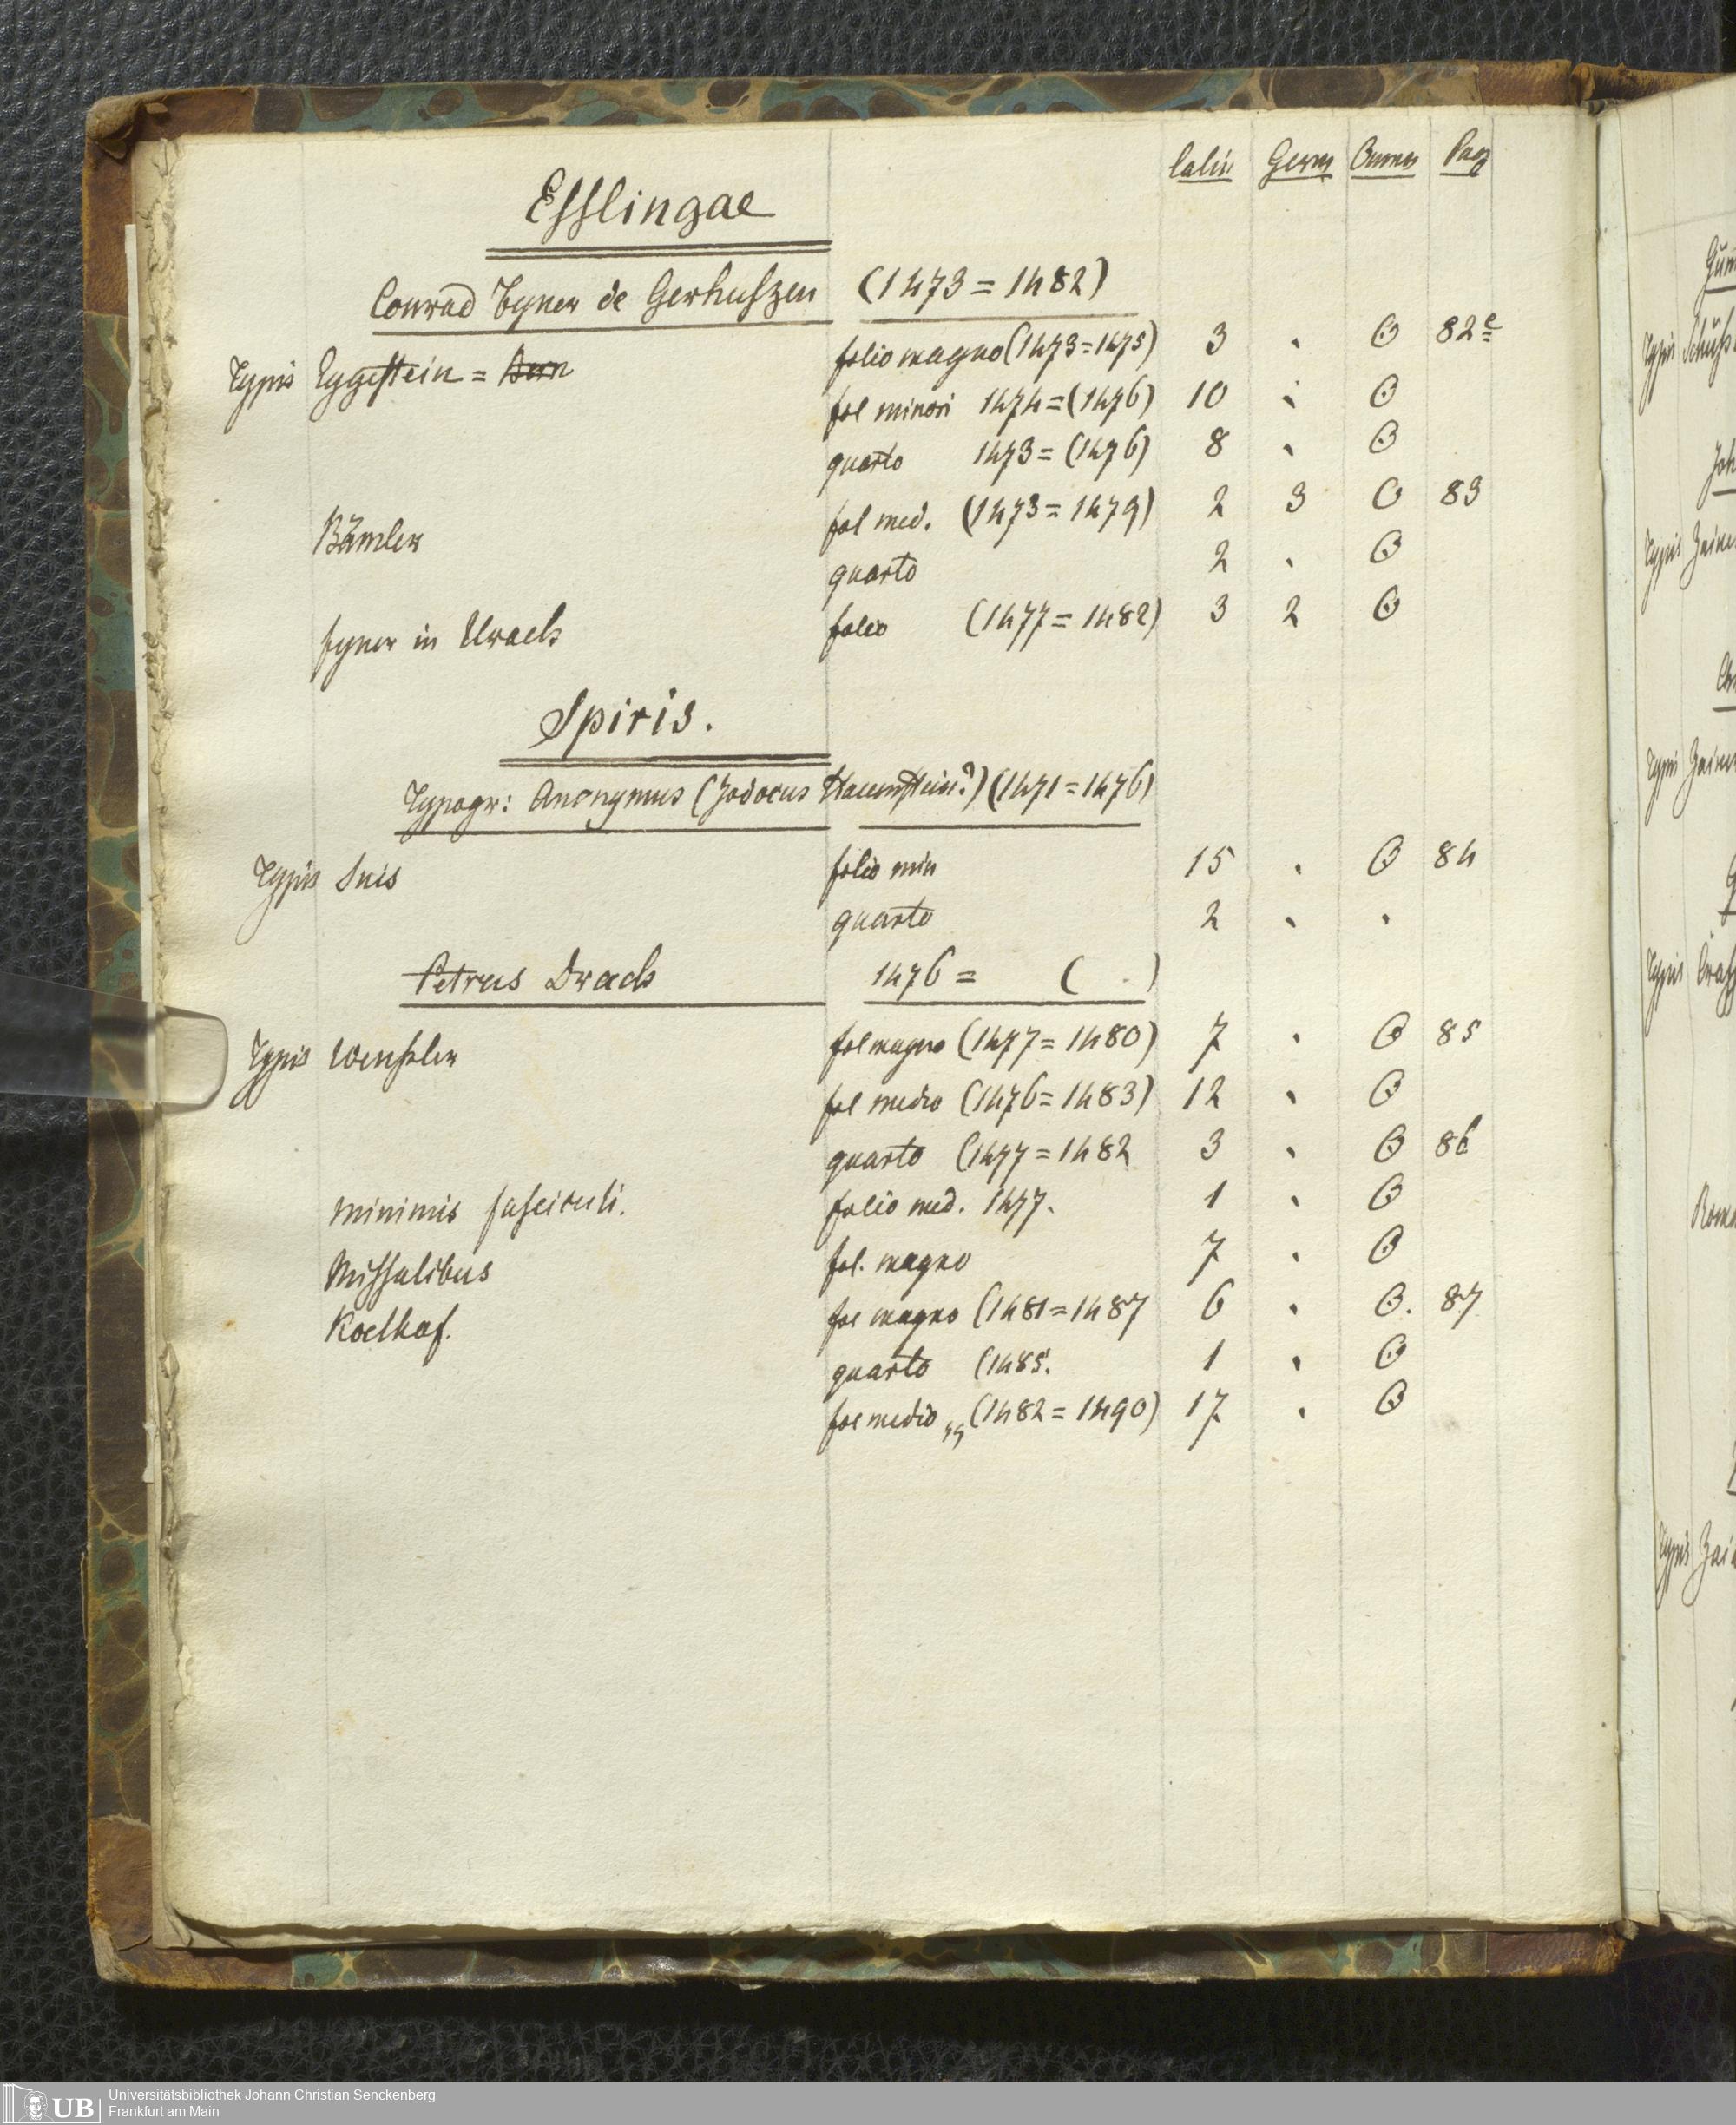 Latin Germ Omnes Pag
Esslingae
Conrad Fyner de Gerhuszen (1473=1482)
Typis Eggestein = folio magno (1473=1475) 3 . ʘ 82
fol minori 1474=(1476) 10 . ʘ
quarto 1473=(1476) 8 . ʘ
Bämler fol med. (1473=1479) 2 3 O 83
quarto 2 . ʘ
fyner in Urach folio (1477=1482) 3 2 ʘ
Spiris.
Typogr: Anonymus (Jodocus Hauenstein?) (1471=1476)
Typis Suis folio min 15 . ʘ 84
quarto 2 . .
Petrus Drach 1476= ( . )
Typis Wenszler fol magno (1477=1480) 7 . ʘ 85
fol medio (1476=1483) 12 . ʘ
quarto (1477=1482 3 . ʘ 86
minimis fasciculi. folio med. 1477. 1 . ʘ
Missalibus fol. magno 7 . ʘ
Koelhof. fol magno (1481=1487 6 . ʘ. 87
quarto (1485. 1 . ʘ
fol medio (1482=1490) 17 . ʘ
Typis
Typis
Typis
Typis
UB Universitätsbibliothek Johann Christian Senckenberg
Frankfurt am Main